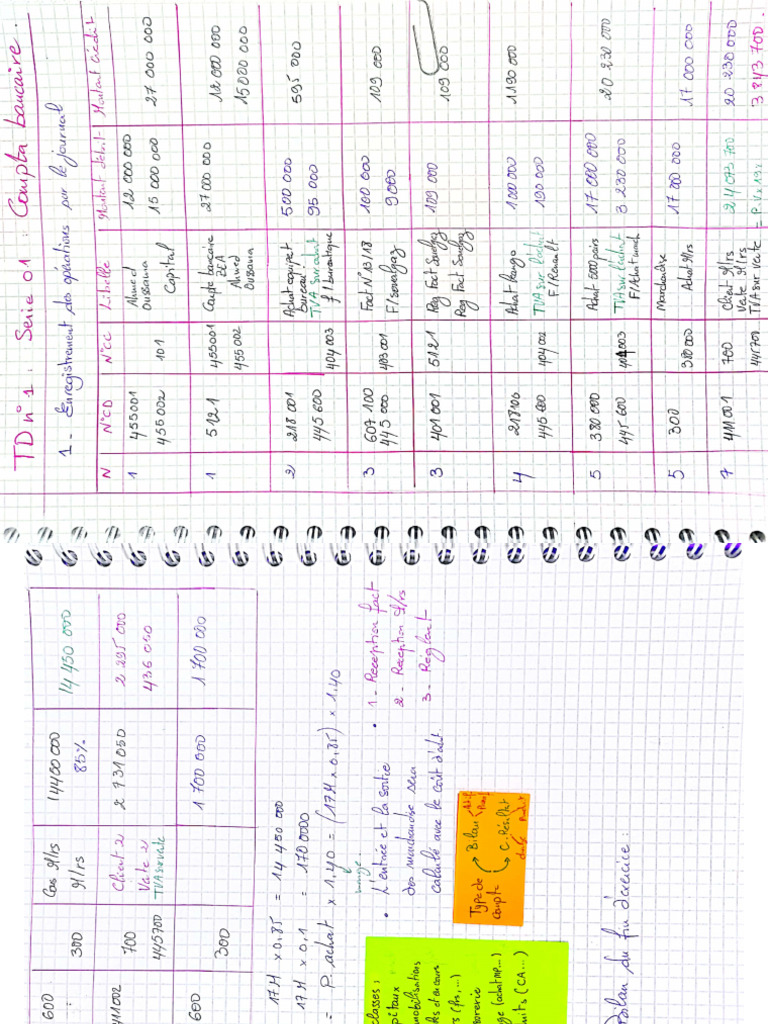 TD n° 1 : Serie 01 : Compta bancaire.
1 - Enregistrement des opérations sur le journal
N N°CD N°CC Libellé Montant débit Montant crédit
1 455001 Ahmed 12 000 000
455002 Oussama 15 000 000
101 Capital 27 000 000
1 5121 Compte bancaire BEA 27 000 000
455001 Ahmed 12 000 000
455002 Oussama 15 000 000
2 218 001 Achat equipet bureau 500 000
445 600 TVA sur achat 95 000
404 003 f/ bureautique 595 000
3 607 100 Fact N° 13/18 100 000
445 000 9000
403 001 F/ sonalgaz 109 000
3 401 001 Reg Fact Sonalgaz 109 000
5121 Reg Fact Sonalgaz 109 000
4 218100 Achat Kango 1000 000
445 600 TVA sur l'achat 190 000
404 002 F/ Renault 1190 000
5 380 000 Achat 17 000 000
445 600 TVA sur l'achat 3 230 000
003 F/Achat 20 230 000
5 300 Marchandise 17 000 000
380 000 Achat M/rs 17 000 000
7 411 001 client M/rs 24 073 700
700 Vente M/rs 20 230 000
445 700 TVA sur vente = P.V x 19% 3 843 700.
600 Cas M/rs 14450 000
300 M/rs 85% 14 450 000
411 002 Client 2 2 731 050
700 Vente 2 2 295 000
445700 TVA sur vente 436 050
600 1 700 000
300 1 700 000
17M x 0.85 = 14 450 000
17M x 0.1 = 170 0000
= P. achat x 1.40 = (17M x 0.85) x 1.40
marge.
• L'entrée et la sortie
des marchandise sera
calculé avec le coût d'achat.
• 1 - Reception fact
2 - Reception M/rs
3 - Réglant
Type de compte
Bilan
Actif
Passif
C. Résultat
charge
Produit
classes :
pitaux
mobilisations
ks et en cours
s (frs,...)
sorerie
ge (achat MP...)
uits (CA...)
Bilan du fin d'exercice :